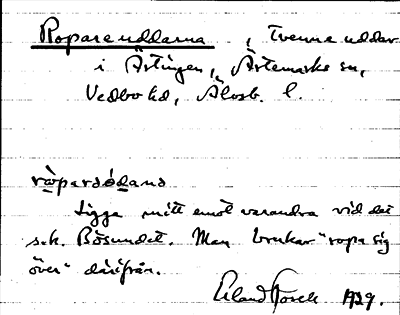 Ropareuddarna, Tvenne uddar
i Ärtingen, Ärtemarks sn,
Vedbo hd, Älvsb. l.
rò̱parɷ̀d̲ana
Ligga mitt emot varandra vid det
s.k. Bösundet. Man brukar "ropa sig
över" därifrån.
Erland Rosell 1929.